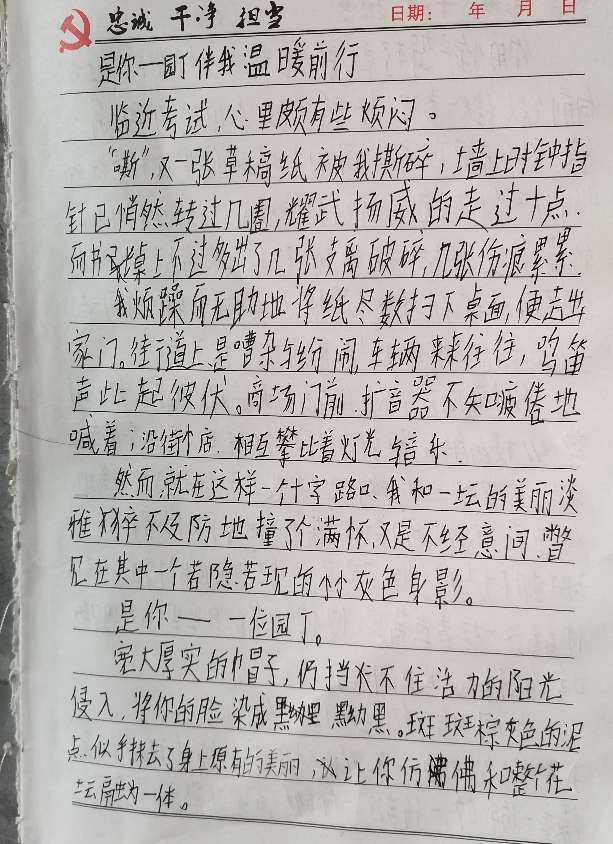 忠诚 干净 担当
日期： 年 月 日
是你—园丁伴我温暖前行
临近考试，心里颇有些烦闷。
“嘶”，又一张草稿纸被我撕碎，墙上时钟指
针已悄然转过几圈，耀武扬威的走过十点．
而书桌上不过多出了几张支离破碎，几张伤痕累累．
我烦躁而无助地将纸尽数扫下桌面，便走出
家门。街道上是嘈杂与纷闹，车辆来来往往，鸣笛
声此起彼伏。商场门前，扩音器不知疲倦地
喊着；沿街小店．相互攀比着灯光与音乐．
然而，就在这样一个十字路口，我和一坛的美丽淡
雅猝不及防地撞了个满怀，又是不经意间，瞥
见在其中一个若隐若现的小小灰色身影。
是你——一位园丁。
宽大厚实的帽子，仍挡不住活力的阳光
侵入，将你的脸染成黝黑。斑斑棕灰色的泥
点似乎抹去了身上原有的美丽，让你仿佛和整个花
坛融为一体。